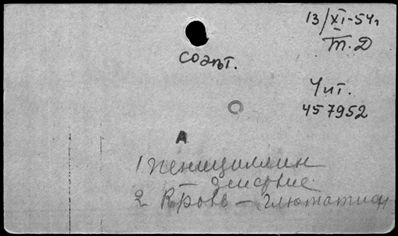 13/XI-54г
Т.Д
соавт.
Чит.
457952
А
1 Пенициллин
действие
2 Кровь - глютатион